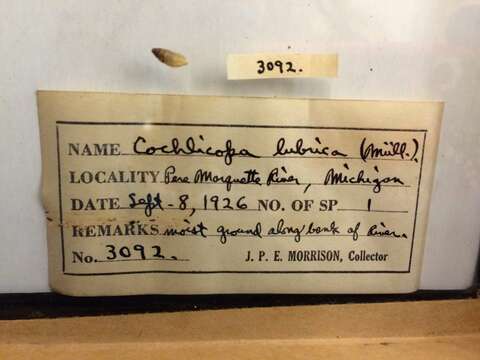 3092.
NAME Cochlicopa lubrica (Müll.).
LOCALITY Pere Marquette River, Michigan
DATE Sept-8, 1926 NO. OF SP 1
REMARKS moist ground along bank of River.
No. 3092. J. P. E. MORRISON, Collector